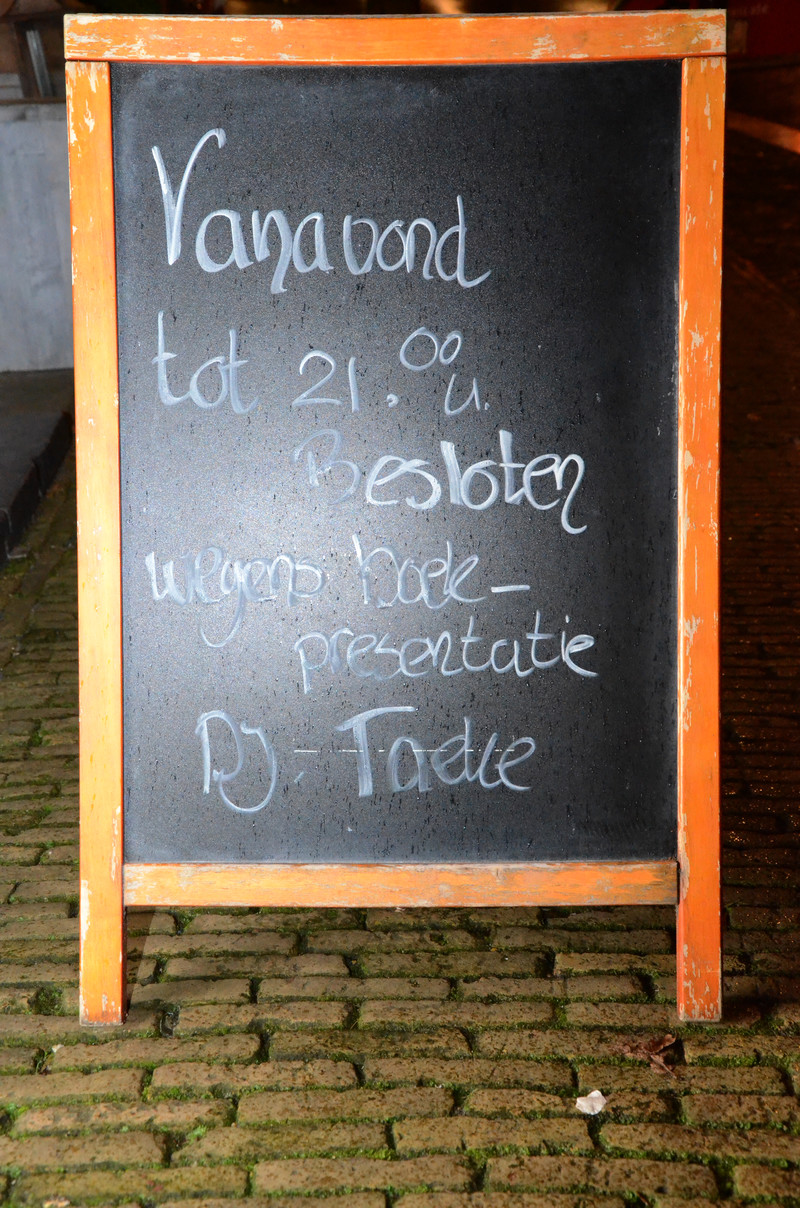 Vanavond
tot 21.00 u.
Besloten
wegens boek-
presentatie
DJ. Taeke